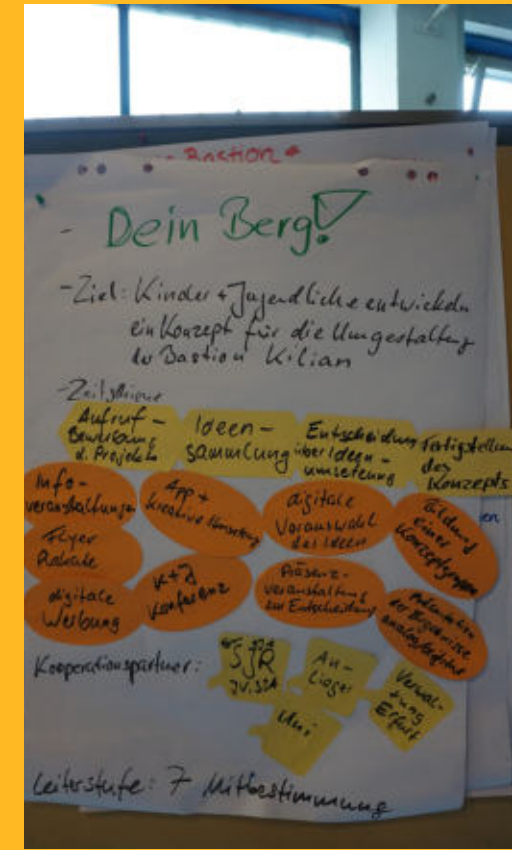 Bastion
- Dein Berg!
- Ziel: Kinder + Jugendliche entwickeln
ein Konzept für die Umgestaltung
der Bastion Kilian
Aufruf -
Bewerbung
d. Projekts
Ideen-
sammlung
Entscheidung
über Ideen-
umsetzung
Fertigstellung
des
Konzepts
Info-
veranstaltungen
App +
kreative Umsetzung
digitale
Vorauswahl
der Ideen
Bildung
einer
Konzeptgruppe
Flyer
Plakate
digitale
Werbung
K+J
Konferenz
Präsenz-
veranstaltung
zur Entscheidung
der Ergebnisse
analog + digital
en
Kooperationspartner:
SJR
An-
lieger
Verwal-
tung
Erfurt
Uni
Leiterstufe: 7 Mitbestimmung